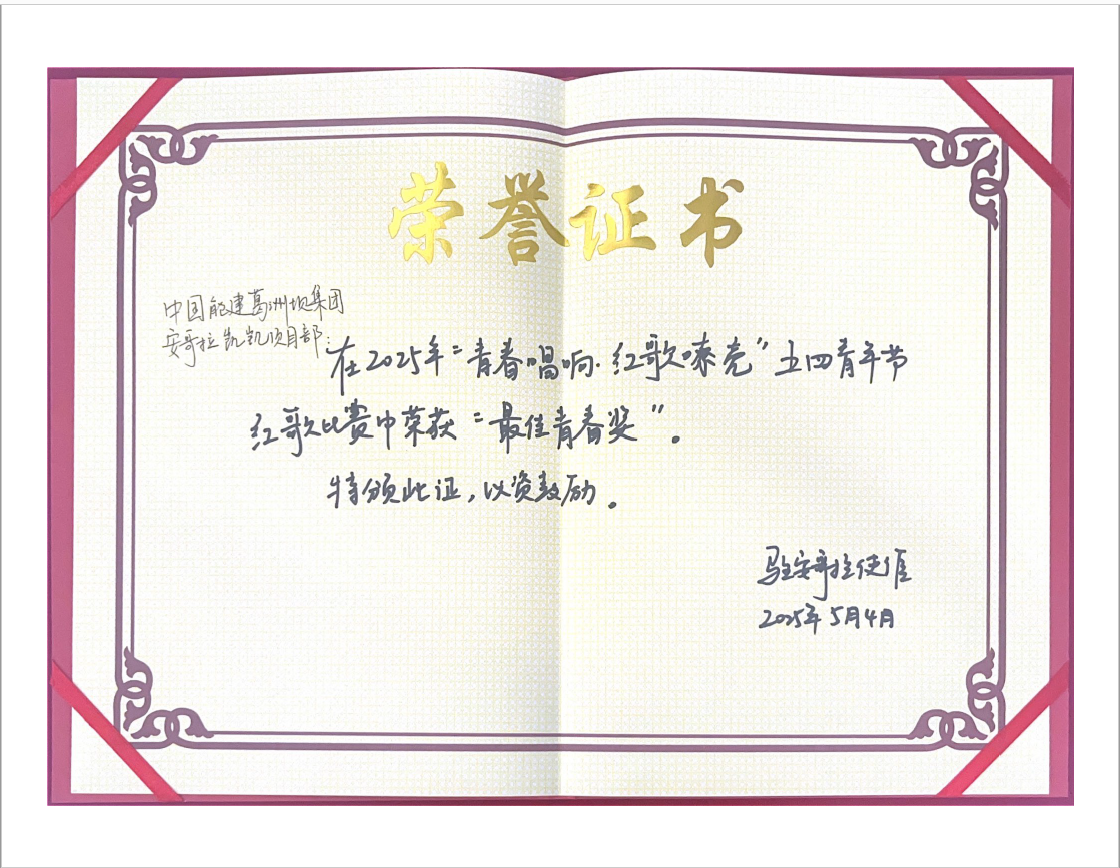 荣誉证书
中国能建葛洲坝集团
安哥拉凯凯项目部：
在2025年“青春唱响·红歌嘹亮”五四青年节
红歌比赛中荣获“最佳青春奖”。
特颁此证，以资鼓励。
驻安哥拉使馆
2025年5月4日